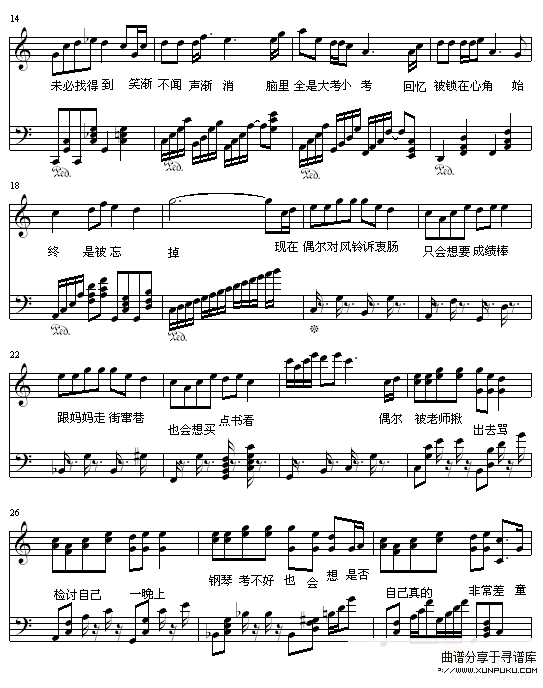 14
未必找得到 笑渐 不闻 声渐 消 脑里 全是大考小考 回忆 被锁在心角 始
Ped. Ped. Ped. Ped.
18
终 是被忘 掉 现在 偶尔对风铃诉衷肠 只会想要成绩棒
Ped. Ped.
22
跟妈妈走 街窜巷 也会想买 点书看 偶尔 被老师揪 出去骂
26
检讨自己 一晚上 钢琴 考不好 也 会 想 是否 自己真的 非常差 童
曲谱分享于寻谱库
WWW.XUNPUKU.COM